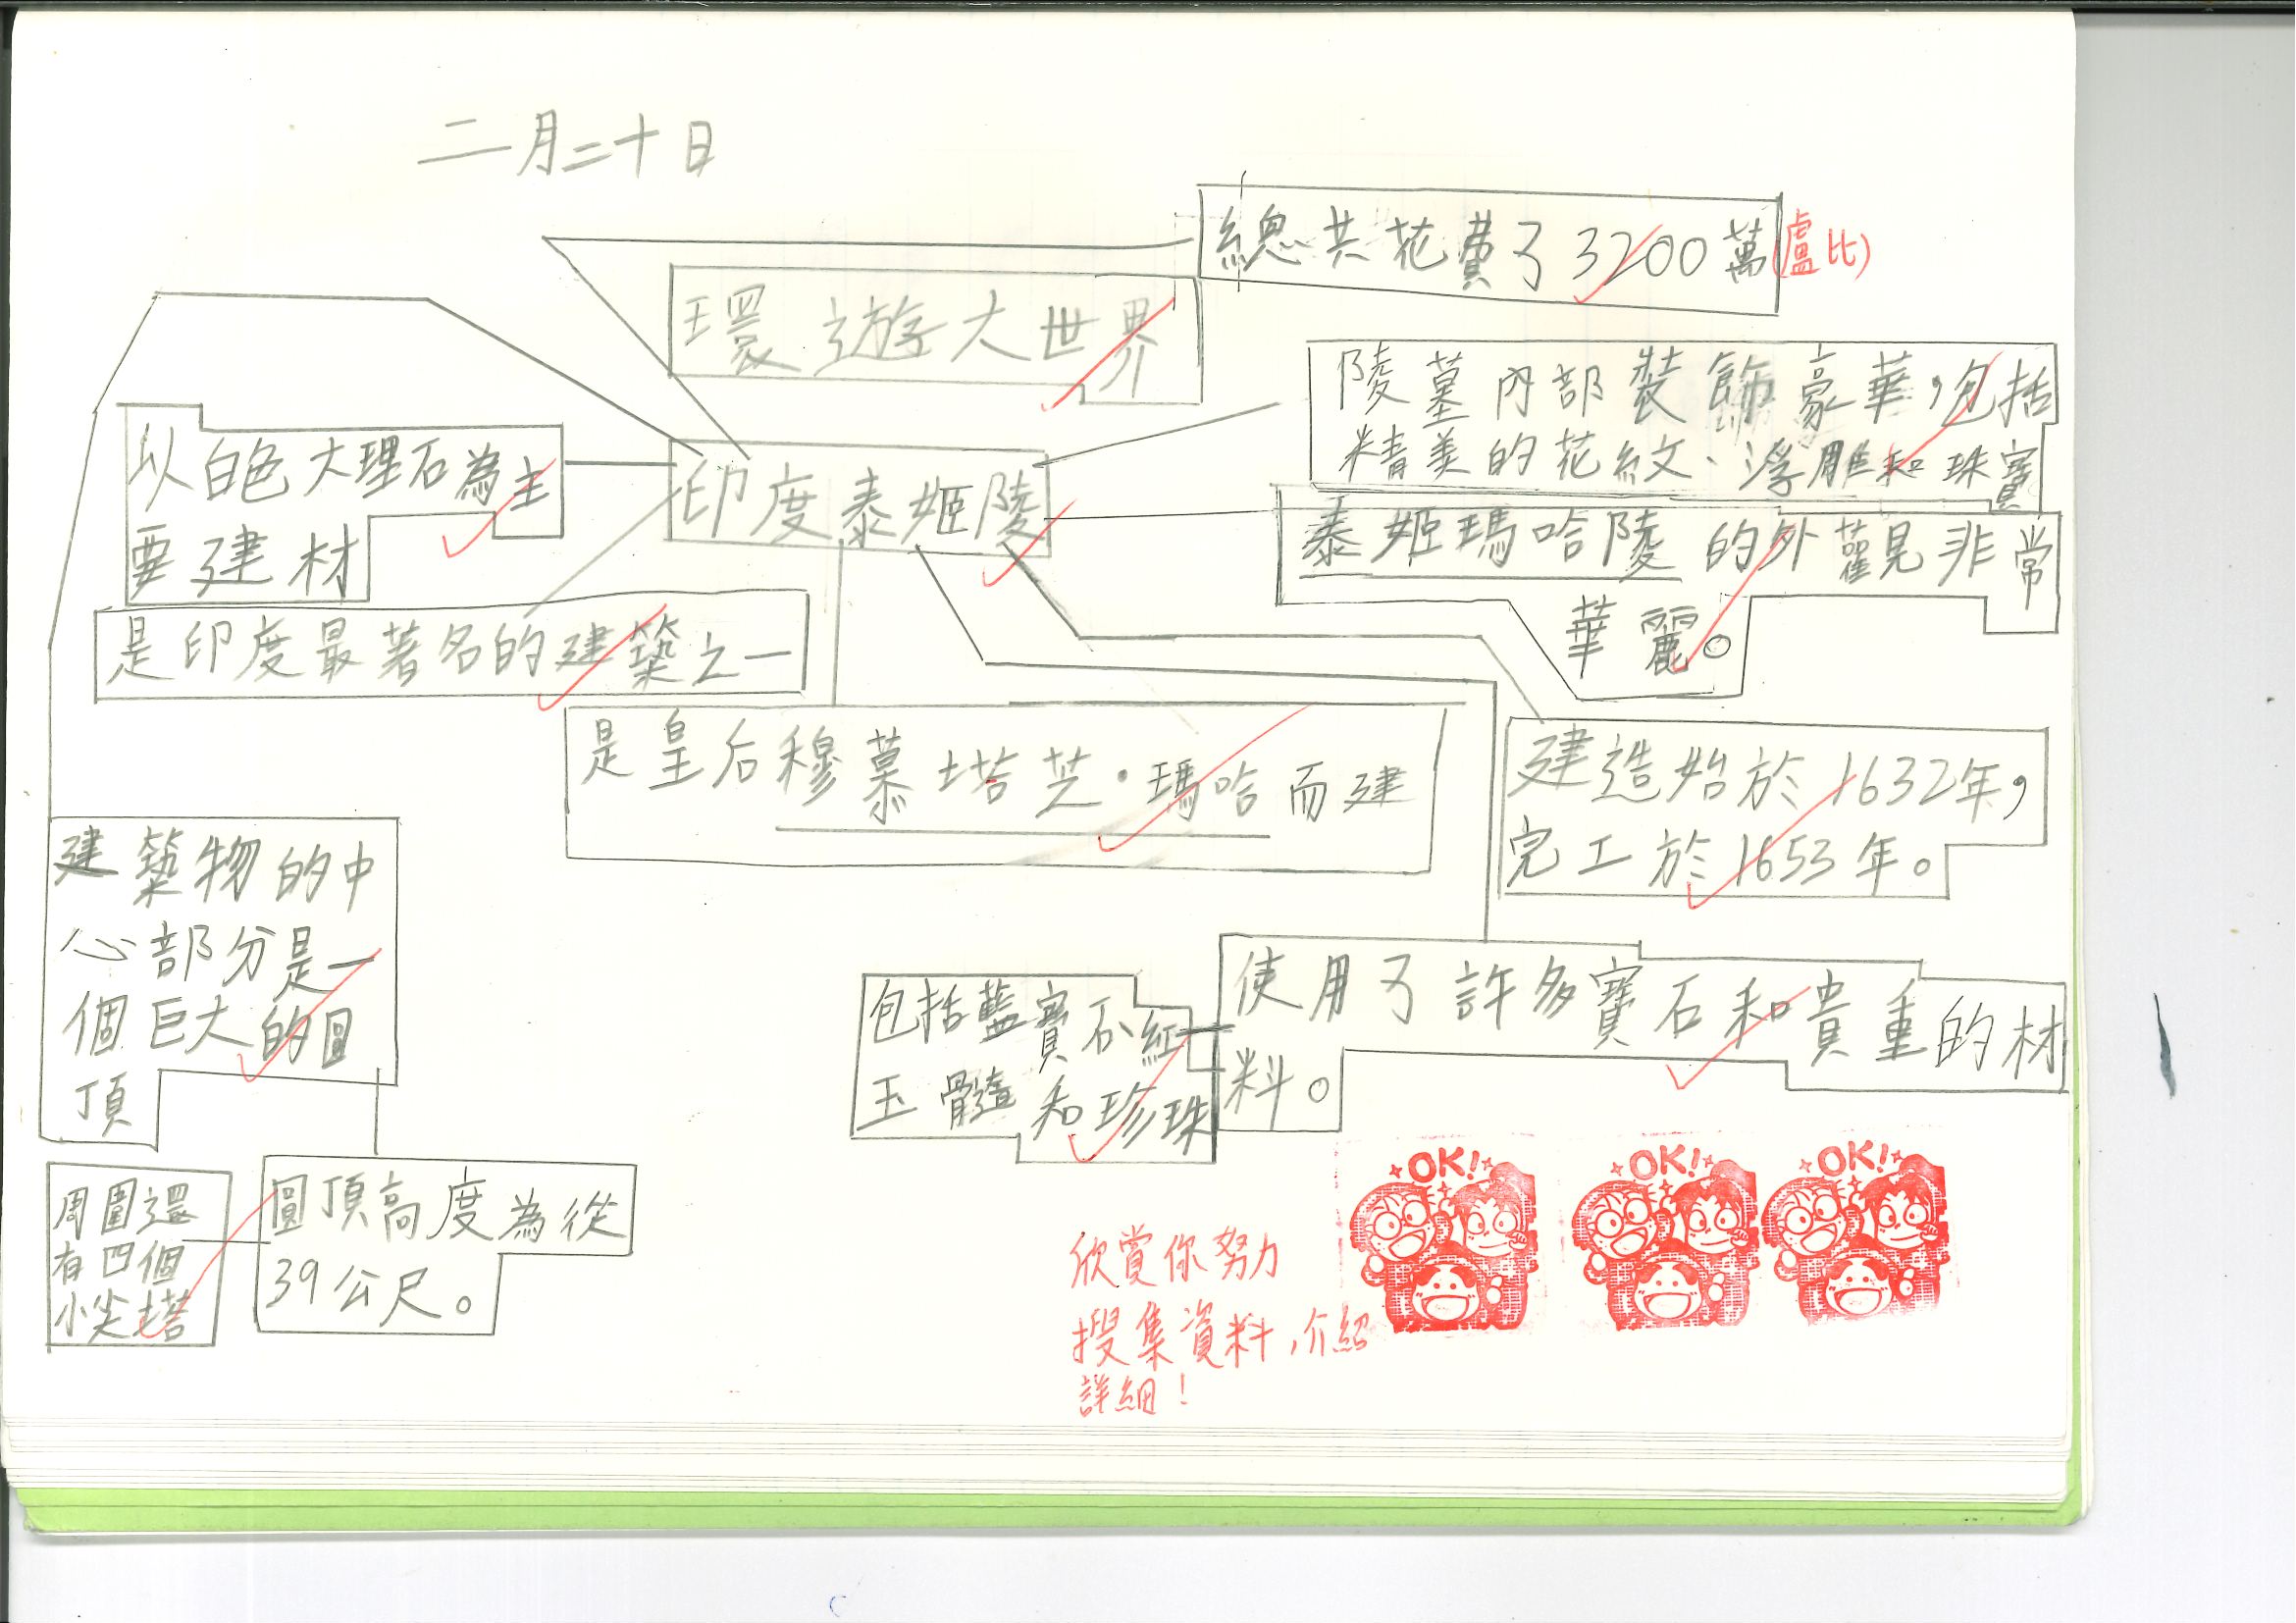 二月二十日
總共花費了3200萬(盧比)
環遊大世界
陵墓內部裝飾豪華,包括
精美的花紋、浮雕和珠寶
以白色大理石為主
要建材
印度泰姬陵
泰姬瑪哈陵的外觀非常
華麗。
是印度最著名的建築之一
是皇后穆慕塔芝·瑪哈而建
建造始於1632年,
完工於1653年。
建築物的中
心部分是一
個巨大的圓
頂
使用了許多寶石和貴重的材
料。
包括藍寶石、紅
玉髓和珍珠
周圍還
有四個
小尖塔
圓頂高度為從
39公尺。
OK!
OK!
OK!
欣賞你努力
搜集資料,介紹
詳細!